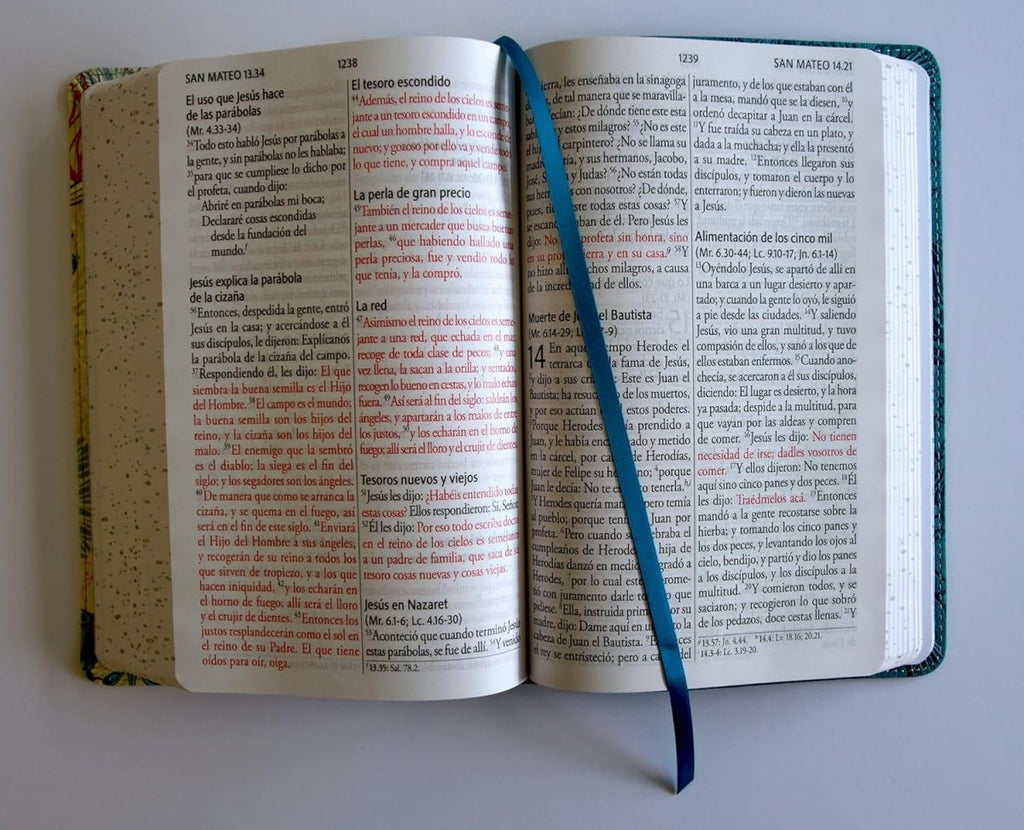 SAN MATEO 13.34
1238
El uso que Jesús hace
de las parábolas
(Mr. 4.33-34)
34Todo esto habló Jesús por parábolas a
la gente, y sin parábolas no les hablaba;
35para que se cumpliese lo dicho por
el profeta, cuando dijo:
Abriré en parábolas mi boca;
Declararé cosas escondidas
desde la fundación del
mundo.f
Jesús explica la parábola
de la cizaña
36Entonces, despedida la gente, entró
Jesús en la casa; y acercándose a él
sus discípulos, le dijeron: Explícanos
la parábola de la cizaña del campo.
37Respondiendo él, les dijo: El que
siembra la buena semilla es el Hijo
del Hombre. 38El campo es el mundo;
la buena semilla son los hijos del
reino, y la cizaña son los hijos del
malo. 39El enemigo que la sembró
es el diablo; la siega es el fin del
siglo; y los segadores son los ángeles.
40De manera que como se arranca la
cizaña, y se quema en el fuego, así
será en el fin de este siglo. 41Enviará
el Hijo del Hombre a sus ángeles,
y recogerán de su reino a todos los
que sirven de tropiezo, y a los que
hacen iniquidad, 42y los echarán en
el horno de fuego; allí será el lloro
y el crujir de dientes. 43Entonces los
justos resplandecerán como el sol en
el reino de su Padre. El que tiene
oídos para oír, oiga.
El tesoro escondido
44Además, el reino de los cielos es seme-
jante a un tesoro escondido en un
el cual un hombre halla, y lo esconde de
nuevo; y gozoso por ello va y vende todo
lo que tiene, y compra aquel campo.
La perla de gran precio
45También el reino de los cielos es seme-
jante a un mercader que busca buenas
perlas, 46que habiendo hallado una
perla preciosa, fue y vendió todo lo
que tenía, y la compró.
La red
47Asimismo el reino de los cielos es seme-
jante a una red, que echada en el mar,
recoge de toda clase de peces; 48y una
vez llena, la sacan a la orilla; y sentados,
recogen lo bueno en cestas, y lo malo echan
fuera. 49Así será al fin del siglo: saldrán los
ángeles, y apartarán a los malos de entre
los justos, 50y los echarán en el horno de
fuego; allí será el lloro y el crujir de dientes.
Tesoros nuevos y viejos
51Jesús les dijo: ¿Habéis entendido todas
estas cosas? Ellos respondieron: Sí, Señor.
52Él les dijo: Por eso todo escriba docto
en el reino de los cielos es semejante
a un padre de familia, que saca de su
tesoro cosas nuevas y cosas viejas.
Jesús en Nazaret
(Mr. 6.1-6; Lc. 4.16-30)
53Aconteció que cuando terminó Jesús
estas parábolas, se fue de allí. 54Y venido
f 13.35: Sal. 78.2.
1239
SAN MATEO 14.21
tierra, les enseñaba en la sinagoga
de, de tal manera que se maravilla-
decían: ¿De dónde tiene este esta
y estos milagros? 55¿No es este
carpintero? ¿No se llama su
madre María, y sus hermanos, Jacobo,
José, y Judas? 56¿No están todas
sus con nosotros? ¿De dónde,
pues, este todas estas cosas? 57Y
se escan de él. Pero Jesús les
dijo: No profeta sin honra, sino
en su tierra y en su casa.g 58Y
no hizo allí muchos milagros, a causa
de la incre dad de ellos.
Muerte de Juan el Bautista
(Mr. 6.14-29; Lc. 7-9)
14 En aquel tiempo Herodes el
tetrarca la fama de Jesús,
2y dijo a sus Este es Juan el
Bautista; ha resu de los muertos,
y por eso actúan estos poderes.
3Porque Herodes prendido a
Juan, y le había enc y metido
en la cárcel, por ca de Herodías,
mujer de Felipe su 4porque
Juan le decía: No te tenerla.h
5Y Herodes quería ma pero temía
al pueblo; porque ten Juan por
profeta. 6Pero cuando se celebraba el
cumpleaños de Herodes, la hija de
Herodías danzó en medio, y agradó a
Herodes, 7por lo cual este prome-
tió con juramento darle todo lo que
pidiese. 8Ella, instruida primero por su
madre, dijo: Dame aquí en un la
cabeza de Juan el Bautista. 9Entonces
el rey se entristeció; pero a causa del
juramento, y de los que estaban con él
a la mesa, mandó que se la diesen, 10y
ordenó decapitar a Juan en la cárcel.
11Y fue traída su cabeza en un plato, y
dada a la muchacha; y ella la presentó
a su madre. 12Entonces llegaron sus
discípulos, y tomaron el cuerpo y lo
enterraron; y fueron y dieron las nuevas
a Jesús.
Alimentación de los cinco mil
(Mr. 6.30-44; Lc. 9.10-17; Jn. 6.1-14)
13Oyéndolo Jesús, se apartó de allí en
una barca a un lugar desierto y apar-
tado; y cuando la gente lo oyó, le siguió
a pie desde las ciudades. 14Y saliendo
Jesús, vio una gran multitud, y tuvo
compasión de ellos, y sanó a los que de
ellos estaban enfermos. 15Cuando ano-
checía, se acercaron a él sus discípulos,
diciendo: El lugar es desierto, y la hora
ya pasada; despide a la multitud, para
que vayan por las aldeas y compren
de comer. 16Jesús les dijo: No tienen
necesidad de irse; dadles vosotros de
comer. 17Y ellos dijeron: No tenemos
aquí sino cinco panes y dos peces. 18Él
les dijo: Traédmelos acá. 19Entonces
mandó a la gente recostarse sobre la
hierba; y tomando los cinco panes y
los dos peces, y levantando los ojos al
cielo, bendijo, y partió y dio los panes
a los discípulos, y los discípulos a la
multitud. 20Y comieron todos, y se
saciaron; y recogieron lo que sobró
de los pedazos, doce cestas llenas. 21Y
g 13.57: Jn. 4.44. h 14.4: Lv. 18.16; 20.21.
i 14.3-4: Lc. 3.19-20.